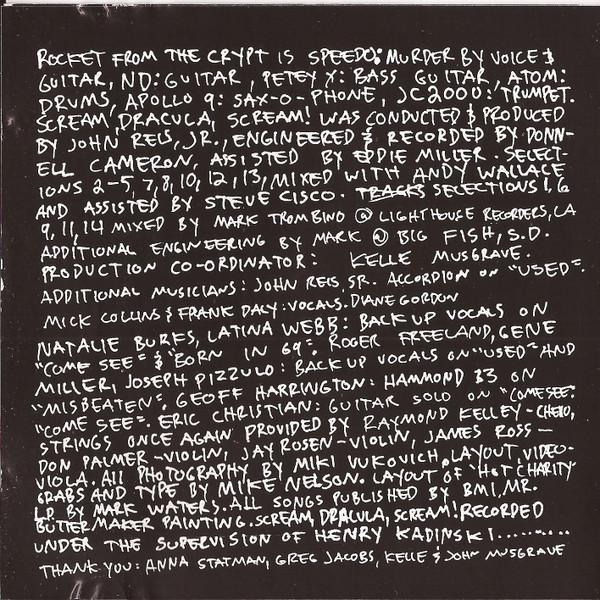 ROCKET FROM THE CRYPT IS SPEEDO: MURDER BY VOICE &
GUITAR, ND: GUITAR, PETEY X: BASS GUITAR, ATOM:
DRUMS, APOLLO 9: SAX-O-PHONE, JC2000: TRUMPET.
SCREAM, DRACULA, SCREAM! WAS CONDUCTED & PRODUCED
BY JOHN REIS, JR., ENGINEERED & RECORDED BY DONN-
ELL CAMERON, ASSISTED BY EDDIE MILLER. SELECT-
IONS 2-5, 7, 8, 10, 12, 13, MIXED WITH ANDY WALLACE
AND ASSISTED BY STEVE CISCO. TRACKS SELECTIONS 1, 6
9, 11, 14 MIXED BY MARK TROMBINO @ LIGHTHOUSE RECORDERS, LA
ADDITIONAL ENGINEERING BY MARK @ BIG FISH, S.D.
PRODUCTION CO-ORDINATOR: KELLE MUSGRAVE.
ADDITIONAL MUSICIANS: JOHN REIS, SR. ACCORDION ON "USED".
MICK COLLINS & FRANK DALY: VOCALS. DIANE GORDON
NATALIE BURKS, LATINA WEBB: BACK UP VOCALS ON
"COME SEE" & "BORN IN 69". ROGER FREELAND, GENE
MILLER, JOSEPH PIZZULO: BACK UP VOCALS ON "USED" AND
"MISBEATEN". GEOFF HARRINGTON: HAMMOND B3 ON
"COME SEE". ERIC CHRISTIAN: GUITAR SOLO ON "COME SEE".
STRINGS ONCE AGAIN PROVIDED BY RAYMOND KELLEY-CHELO,
DON PALMER-VIOLIN, JAY ROSEN-VIOLIN, JAMES ROSS-
VIOLA. All PHOTOGRAPHY BY MIKI VUKOVICH. LAYOUT, VIDEO-
GRABS AND TYPE BY MIKE NELSON. LAYOUT OF "HOT CHARITY"
LP BY MARK WATERS. All SONGS PUBLISHED BY BMI, MR.
BUTTERMAKER PAINTING. SCREAM, DRACULA, SCREAM! RECORDED
UNDER THE SUPERVISION OF HENRY KADINSKI..........
THANK YOU: ANNA STATMAN, GREG JACOBS, KELLE & JOHN MUSGRAVE